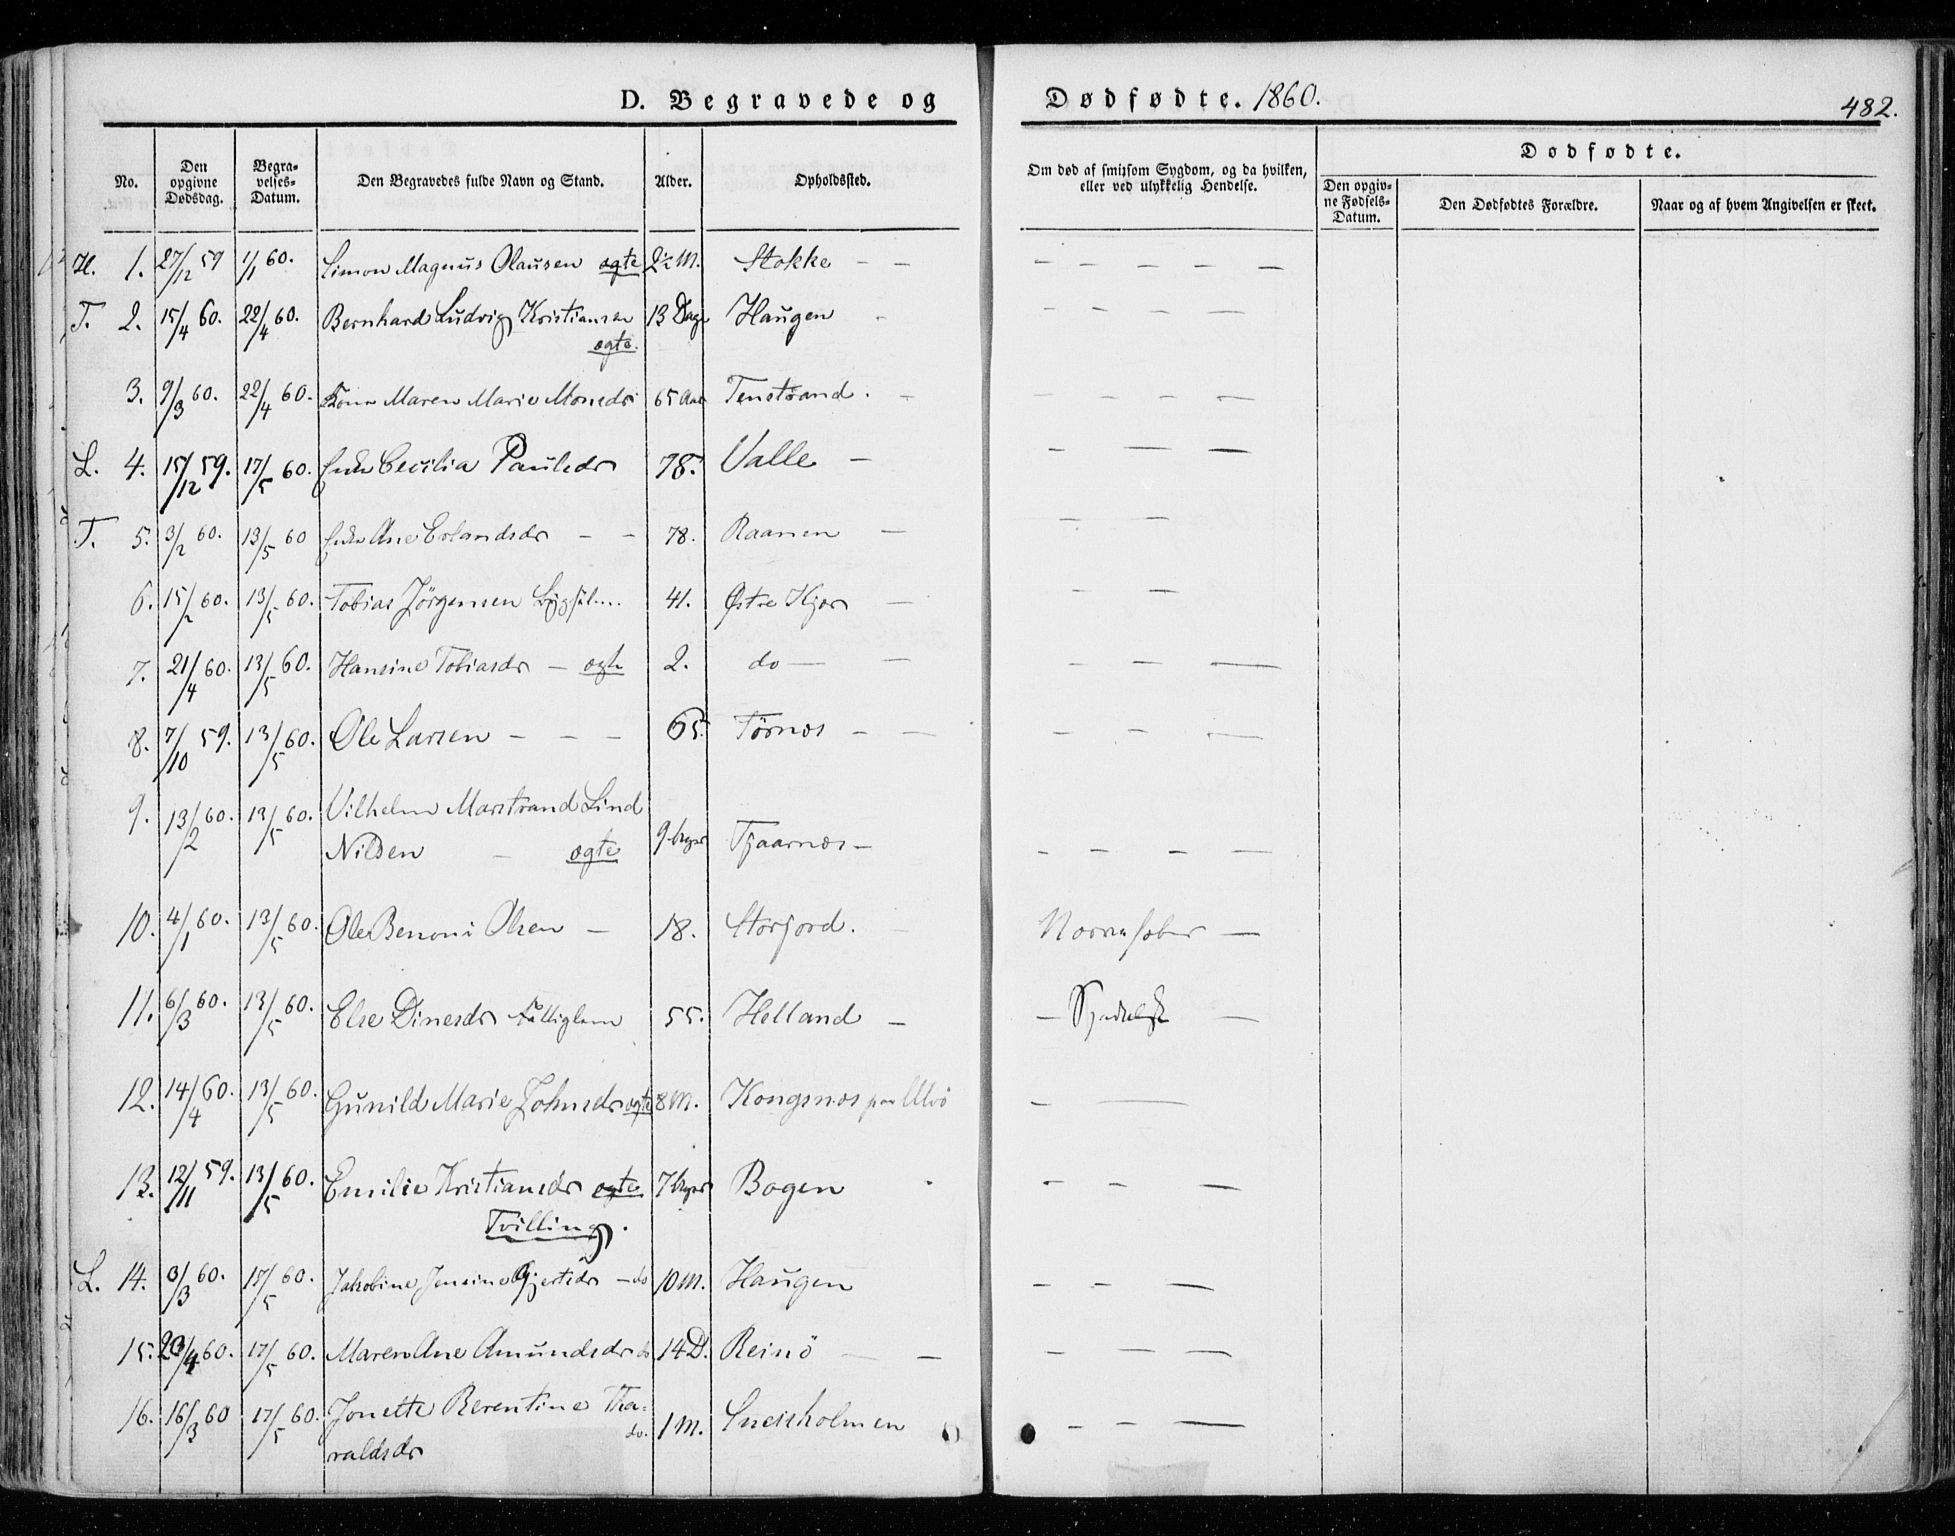 D. Begravede og Dødfødte. 1860.
482.
No. Den opgivne Dødsdag. Begravelses-Datum. Den Begravedes fulde Navn og Stand. Alder. Opholdssted. Om død af smitsom Sygdom, og da hvilken, eller ved ulykkelig Hendelse. Dødfødte. Den opgivne Fødsels-Datum. Den Dødfødtes Forældre. Naar og af hvem Angivelsen er skeet.
H. 1. 27/12 59 1/1 60. Simon Magnus Olausen ægte 2½ M. Stokke – – – – – – –
T. 2. 15/4 60. 22/4 60. Bernhard Ludvig Kristiansen 13 Dage Haugen – – – –
ægte.
3. 9/3 60. 22/4 60. Kone Maren Marie Monsdr 65 Aar Tenstrand. – – – – –
L. 4. 15/12 59. 17/5 60. Enke Cecilia Paulsdr 78. Valle – – — —
T. 5. 3/2 60. 13/5 60 Enke Ane Erlandsdr – – 78. Raanen — – —
6. 15/2 60. 13/5 60. Tobias Jörgensen 41. Østre Kjær — – —
7. 21/4 60. 13/5 60. Hansine Tobiasdr – ægte 2. do — — – – —
8. 7/10 59. 13/5 60. Ole Larsen – – – 65. Tørnæs – – – – —
9. 13/2 60. 13/5 60. Vilhelm Marstrand Lind
Nilsen – ægte 9 Uger Tjaarnæs – – – – —
10. 4/1 60. 13/5 60. Ole Benoni Olsen – 18. Storfjord. –
11. 6/3 60. 13/5 60. Else Dinesdr Fattiglem 55. Helland – – Spedalsk —
12. 14/4 60. 13/5 60. Gunild Marie Johnsdr ægte 8 M. Kongsnæs paa Ulvö – —
13. 12/11 59. 13/5 60. Emilie Kristiansdr ægte 7 Uger Bogen – – —
Tvilling.
L. 14. 3/3 60. 17/5 60. Jakobine Jensine Gjertsdr – do 10 M. Haugen – – —
15. 23/4 60. 17/5 60. Maren Ane Amundsdr do 14 D. Reinö — – – — —
16. 16/3 60 17/5 60. Jonette Berentine Tha-
raldsdr do. 1 M. Sneisholmen – – —